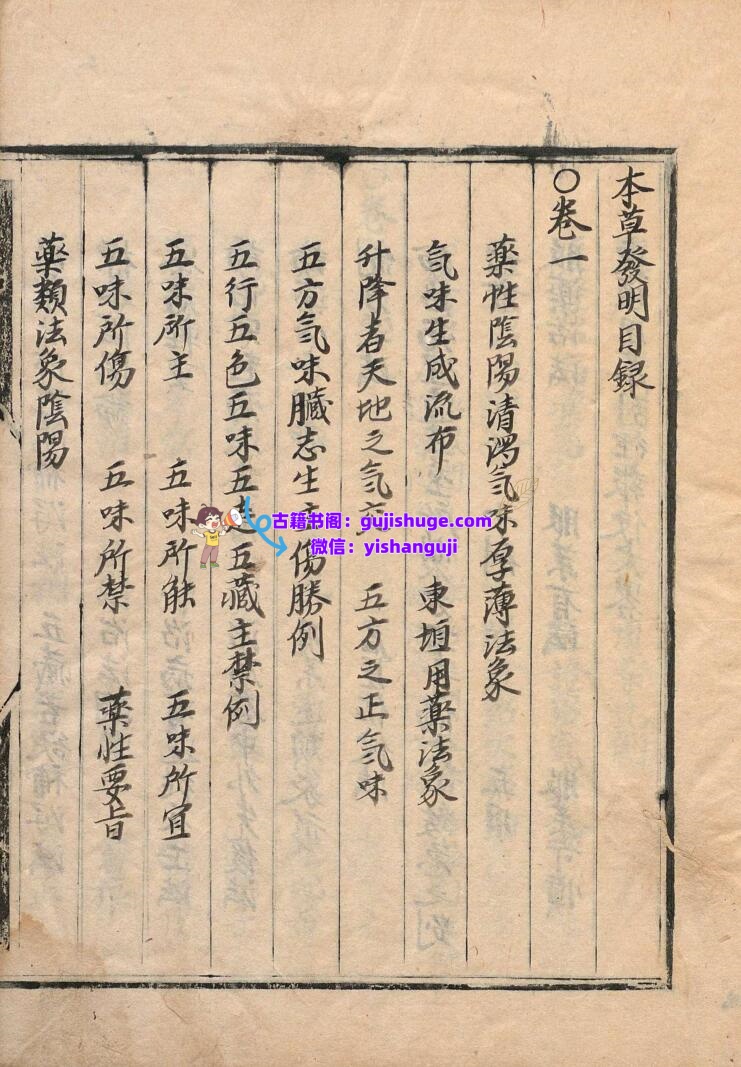 本草發明目錄
○卷一
藥性陰陽清濁氣味厚薄法象
氣味生成流布 東垣用藥法象
升降者天地之氣交 五方之正氣味
五方氣味臟志生主傷勝例
五行五色五味五走五藏主禁例
五味所主 五味所能 五味所宜
五味所傷 五味所禁 藥性要旨
藥類法象陰陽
古籍书阁：gujishuge.com
微信：yishanguji